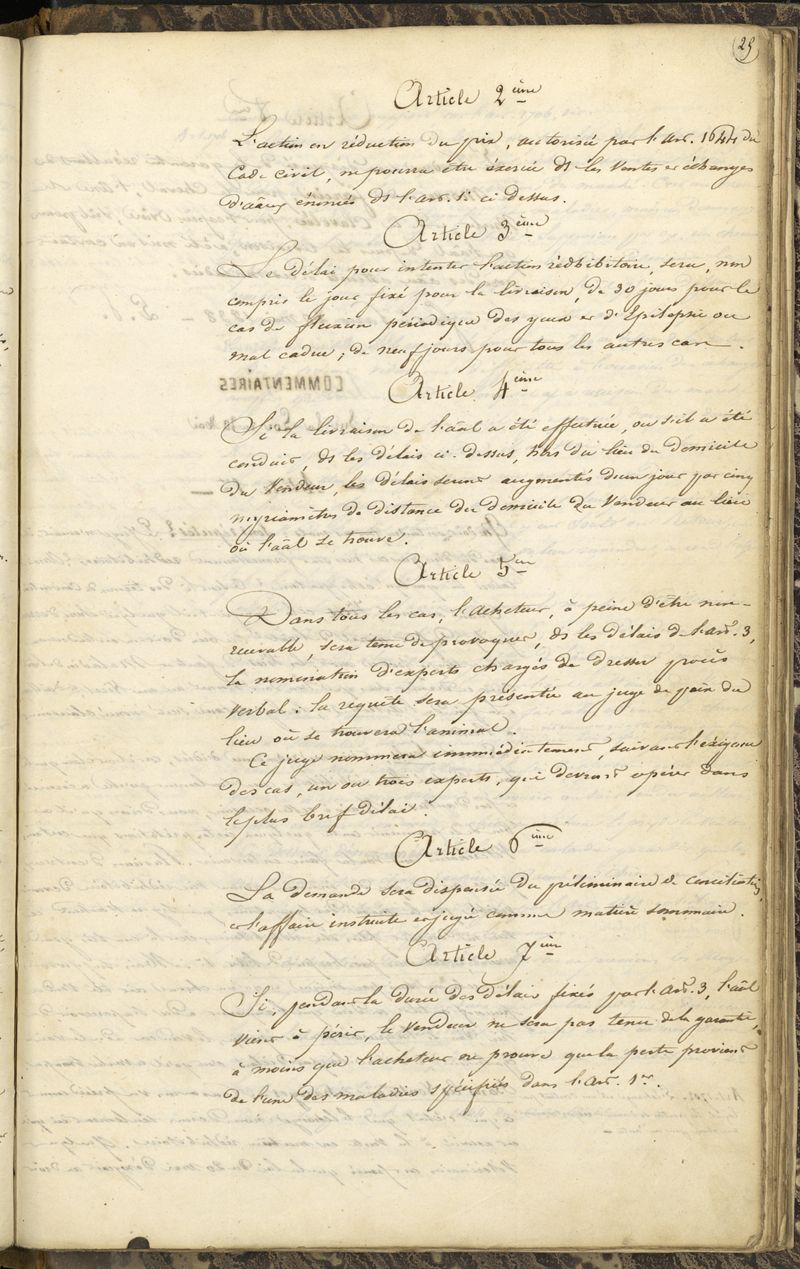 25
Article 2ème
L'action en réduction du prix, autorisée par l'art. 1644 du
Code civil, ne pourra être exercée ds les Ventes et échanges
d'aãux énoncés ds l'art. 1er ci dessus.
Article 3ème
Le délai pour intenter l'action rédhibitoire, sera, non
compris le jour fixé pour la livraison, de 30 jours pour le
cas de fluxion périodique des yeux et d'Epilepsie ou
mal caduc; de neuf jours pour tous les autres cas.
COMMENTAIRES
Article 4ème
Si la livraison de l'aãl a été effectuée, ou s'il a été
conduit, ds les délais ci-dessus, hors du lieu du domicile
du Vendeur, les délais seront augmentés d'un jour par cinq
myriamètres de distance du domicile du Vendeur au lieu
où l'aãl se trouve.
Article 5ème
Dans tous les cas, l'acheteur, à peine d'être non-
recevable, sera tenu de provoquer, ds les délais de l'art. 3,
la nomination d'experts chargés de dresser procès
verbal: la requête sera présentée au juge de paix du
lieu où se trouvera l'animal.
Ce juge nommera immédiatement, suivant l'éxigence
des cas, un ou trois experts, qui devront opérer dans
le plus bref délai.
Article 6ème
La demande sera dispensée du préliminaire de conciliation,
et l'affaire instruite et jugée comme matière sommaire.
Article 7ème
Si, pendant la durée des délais fixés par l'art. 3, l'aãl
vient à périr, le vendeur ne sera pas tenu de la garantie,
à moins que l'acheteur ne prouve que la perte provient
de l'une des maladies spécifiées dans l'art. 1er.